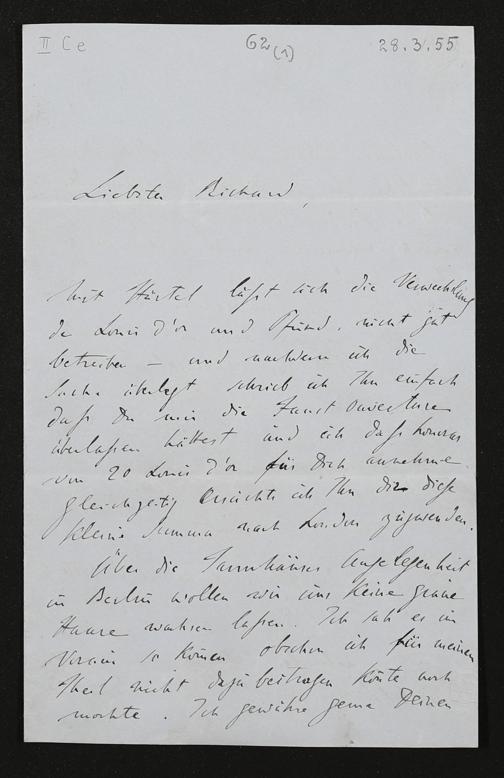 II Ce 62 (1) 28.3.55
Liebster Richard,
Mit Härtel läßt sich die Verwechslung
der Louis d'or und Pfund, nicht gut
betreiben – und nachdem ich die
Sache überlegt schrieb ich Ihm einfach
daß Du mir die Faust Ouverture
überlaßen hättest und ich das Honorar
von 20 Louis d'or für Dich annehme
gleichzeitig ersuchte ich Ihn Dir diese
kleine Summa nach London zuzuwenden.
Über die Tannhäuser Angelegenheit
in Berlin wollen wir uns keine graue
Haare wachsen laßen. Ich sah es im
Voraus so kom̄en obschon ich für meinen
Theil nicht dazu beitragen kon̄te noch
mochte. Ich gewähre gerne Deinen